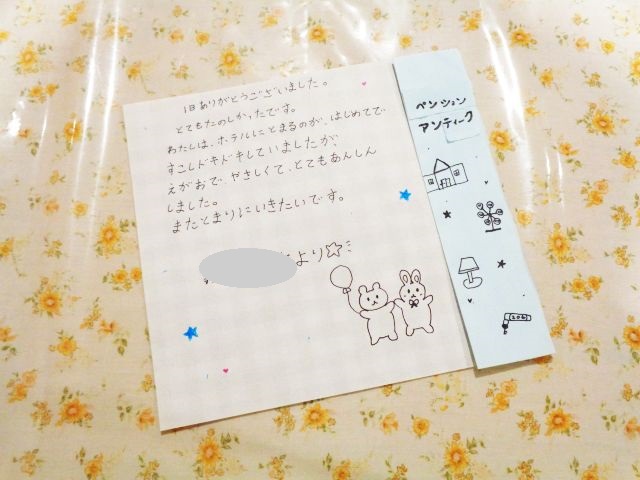 1日ありがとうございました。
とてもたのしかったです。
わたしは、ホテルにとまるのが、はじめてで
すこしドキドキしていましたが、
えがおで、やさしくて、とてもあんしん
しました。
またとまりにいきたいです。
より
ペンション
アンティーク